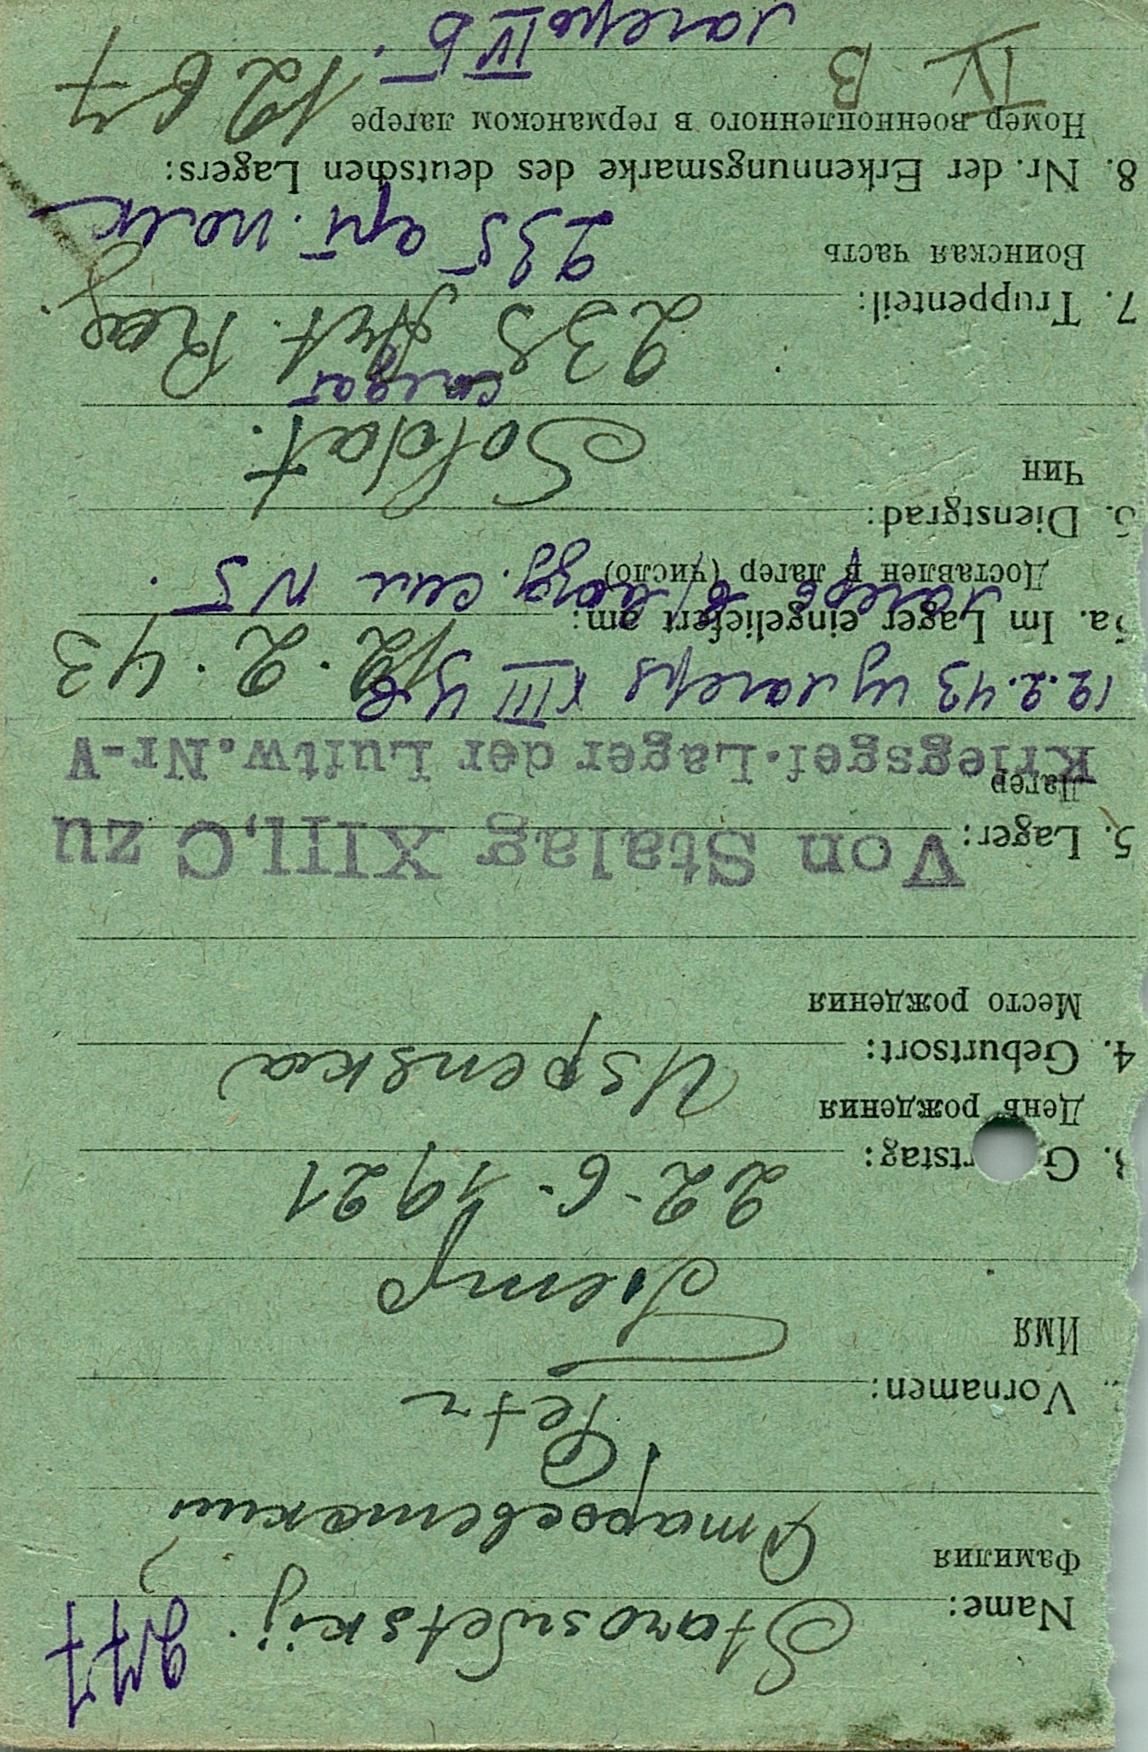 977
Name: Staroswetskij.
Фамилия Старосветский
Vornamen: Petr
Имя Петр
3. G rtstag: 22.6.1921
День рождения
4. Geburtsort: Uspenska
Место рождения
5. Lager: Von Stalag XIII,C zu
Лагерь
Kriegsgef.Lager der Luftw.Nr-V
12.2.43 из лагеря XIII
5a. Im Lager eingeliefert am: 12.2.43
Доставлен в лагер (число)
лагерь в/возд. сил N5.
6. Dienstgrad: Soldat.
Чин
солдат
7. Truppenteil: 235 Art. Reg.
Воинская часть
235 арт. полк
8. Nr. der Erkennungsmarke des deutschen Lagers:
Номер военнопленного в германском лагере
IV B 12
лагеря IV Б.